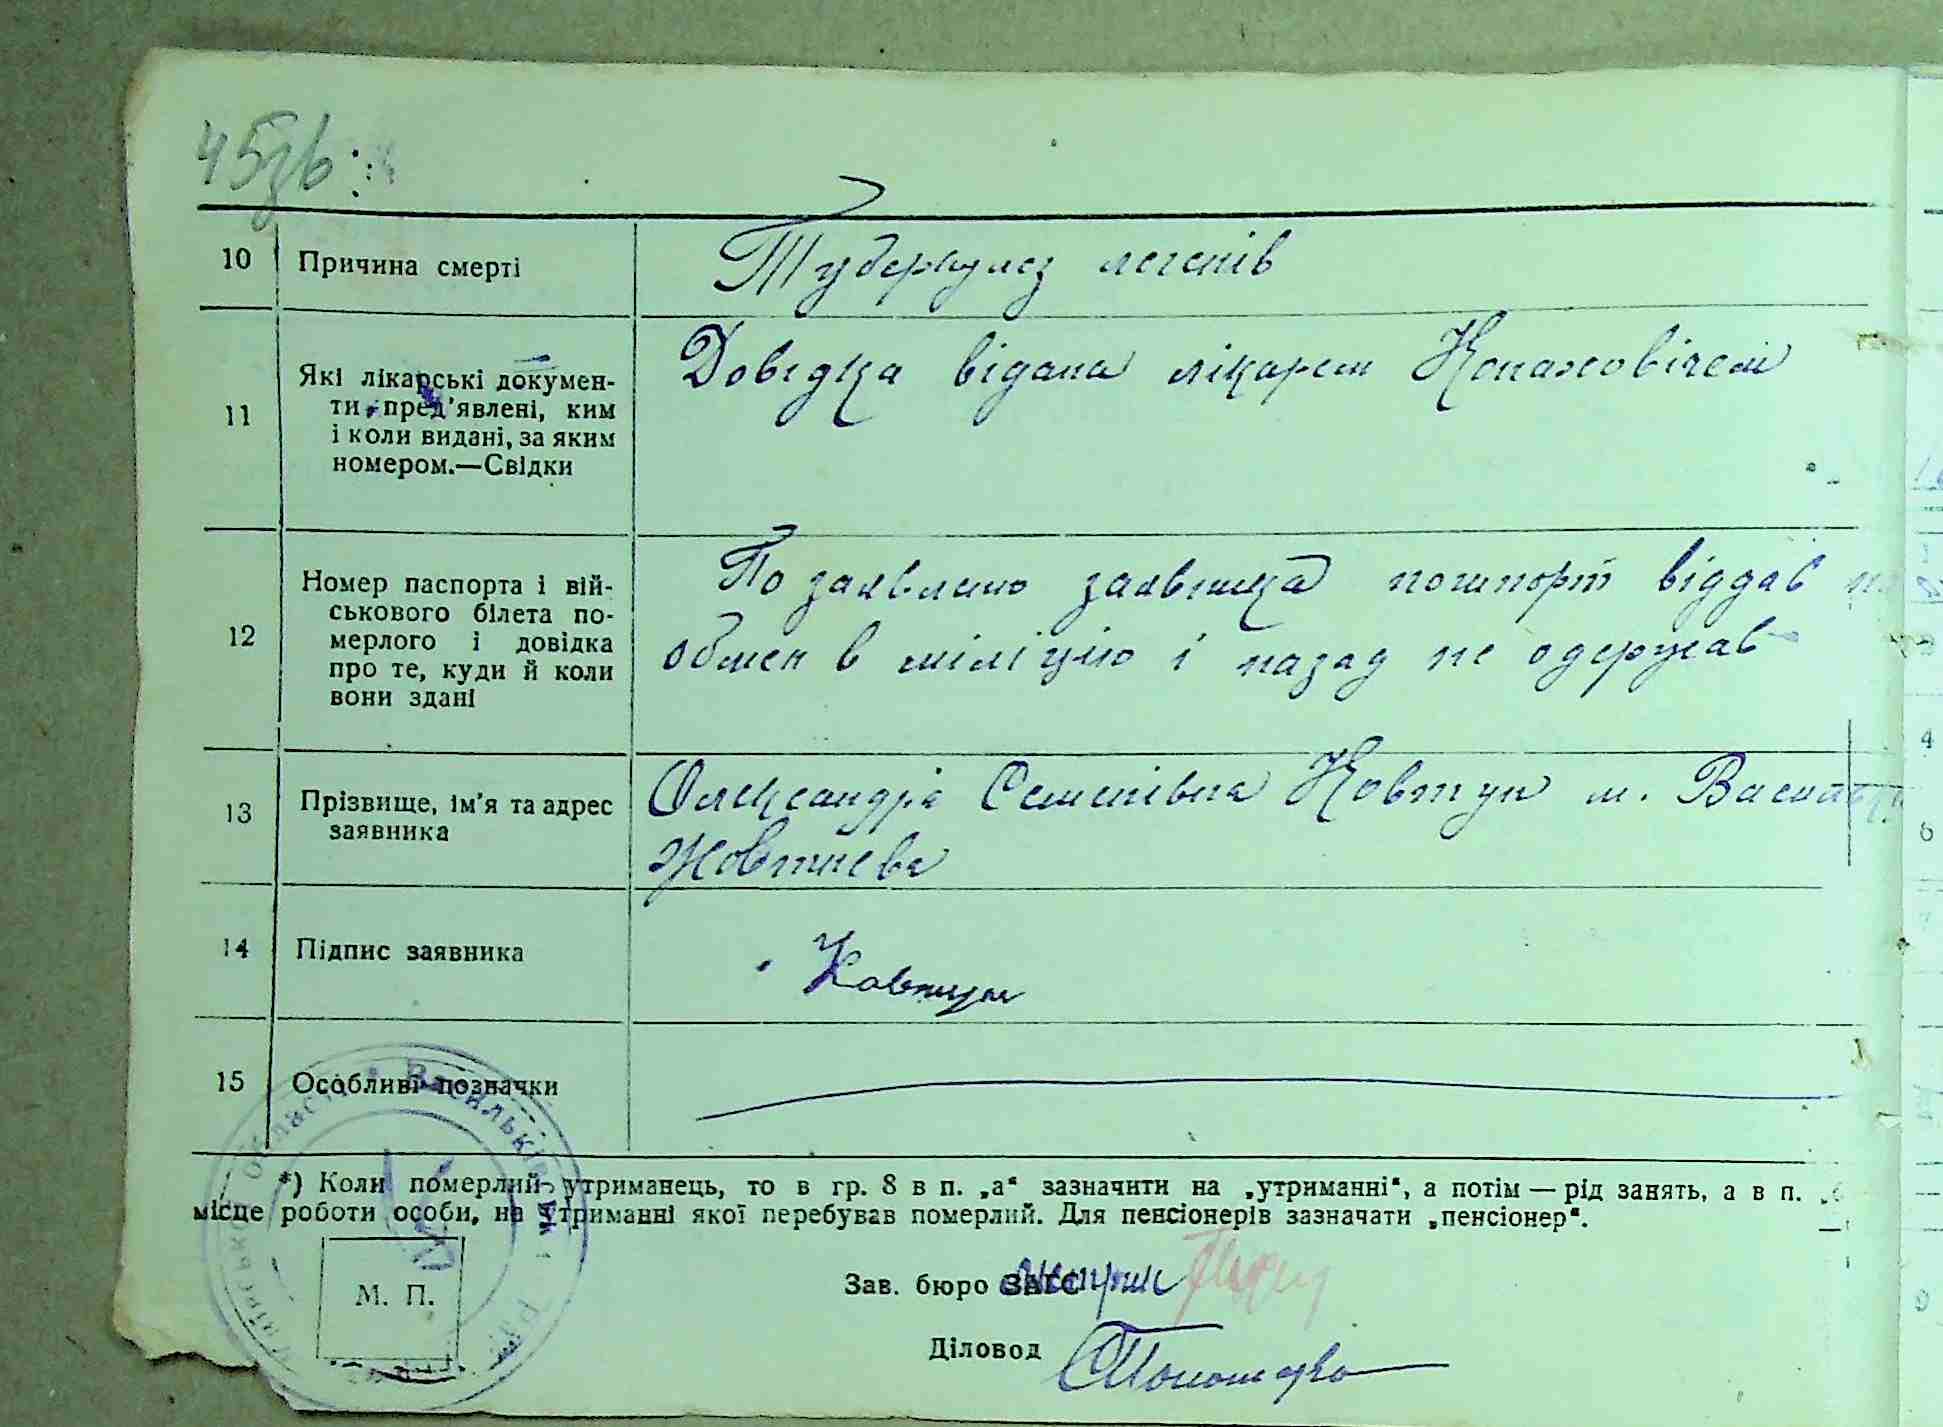 45зв
10 Причина смерті
Туберкулез легенів
11 Які лікарські докумен-
ти пред'явлені, ким
і коли видані, за яким
номером.—Свідки
Довідка відана лікарем
12 Номер паспорта і вій-
ськового білета по-
мерлого і довідка
про те, куди й коли
вони здані
По заявлению заявница пошпорт віддав на
обмен в міліцию і назад не одержав
13 Прізвище, ім'я та адрес
заявника
Олександра Семенівна Ковтун м. Василь
Жовтнева
14 Підпис заявника
Ковтун
15 Особливі позначки
*) Коли померлий утриманець, то в гр. 8 в п. „а“ зазначити на „утриманні“, а потім — рід занять, а в п.
місце роботи особи, на утриманні якої перебував померлий. Для пенсіонерів зазначати „пенсіонер“.
області • Васильків
М. П.
Зав. бюро ЗАГС
Діловод